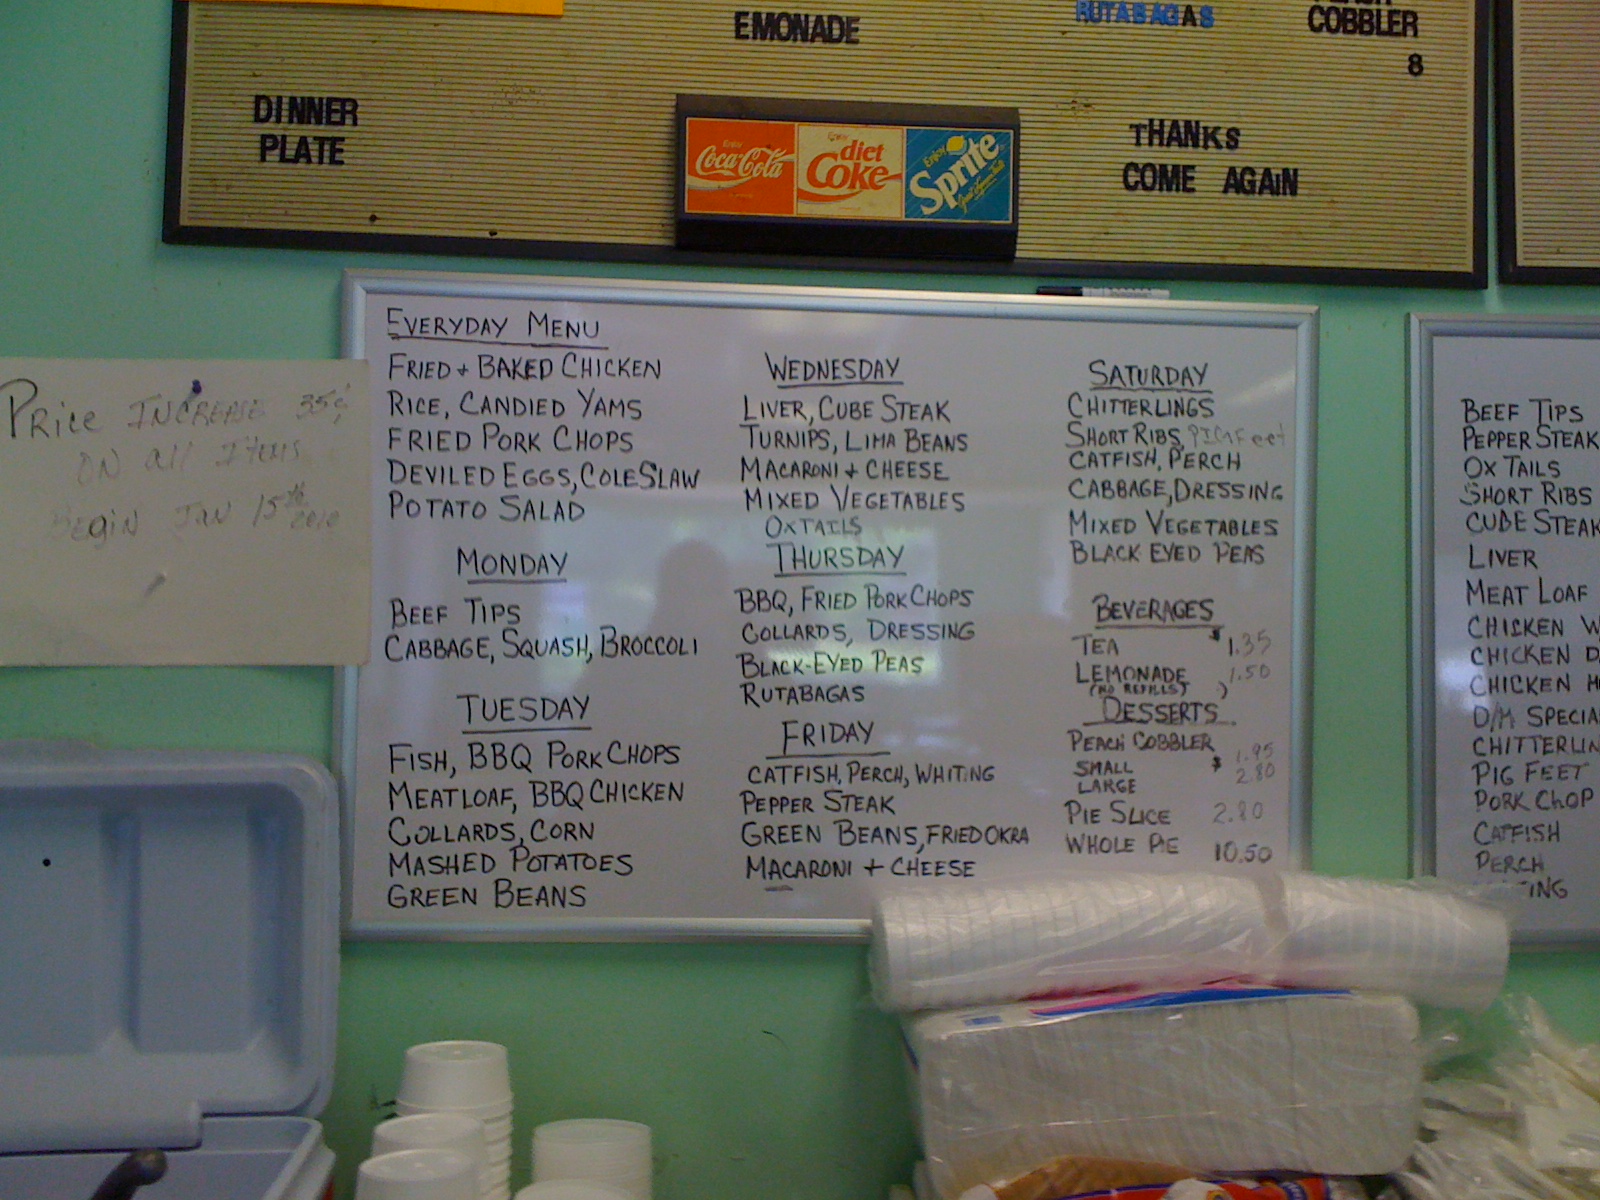 EMONADE
RUTABAGAS
COBBLER
8
DINNER
PLATE
Enjoy
Coca-Cola
Enjoy
diet
Coke
Enjoy
Sprite
THANKS
COME AGAIN
PRICE INCREASE 35¢
ON all ITEMS
Begin JAN 15th
2010
EVERYDAY MENU
FRIED + BAKED CHICKEN
RICE, CANDIED YAMS
FRIED PORK CHOPS
DEVILED EGGS, COLE SLAW
POTATO SALAD
MONDAY
BEEF TIPS
CABBAGE, SQUASH, BROCCOLI
TUESDAY
FISH, BBQ PORK CHOPS
MEATLOAF, BBQ CHICKEN
COLLARDS, CORN
MASHED POTATOES
GREEN BEANS
WEDNESDAY
LIVER, CUBE STEAK
TURNIPS, LIMA BEANS
MACARONI + CHEESE
MIXED VEGETABLES
OXTAILS
THURSDAY
BBQ, FRIED PORK CHOPS
COLLARDS, DRESSING
BLACK-EYED PEAS
RUTABAGAS
FRIDAY
CATFISH, PERCH, WHITING
PEPPER STEAK
GREEN BEANS, FRIED OKRA
MACARONI + CHEESE
SATURDAY
CHITTERLINGS
SHORT RIBS, PIG Feet
CATFISH, PERCH
CABBAGE, DRESSING
MIXED VEGETABLES
BLACK EYED PEAS
BEVERAGES
TEA $1.35
LEMONADE 1.50
(NO REFILLS)
DESSERTS
PEACH COBBLER
SMALL $1.95
LARGE 2.80
PIE SLICE 2.80
WHOLE PIE 10.50
BEEF TIPS
PEPPER STEAK
OX TAILS
SHORT RIBS
CUBE STEAK
LIVER
MEAT LOAF
CHICKEN W
CHICKEN D
CHICKEN
D/M SPECIA
CHITTERLIN
PIG FEET
PORK CHOP
CATFISH
PERCH